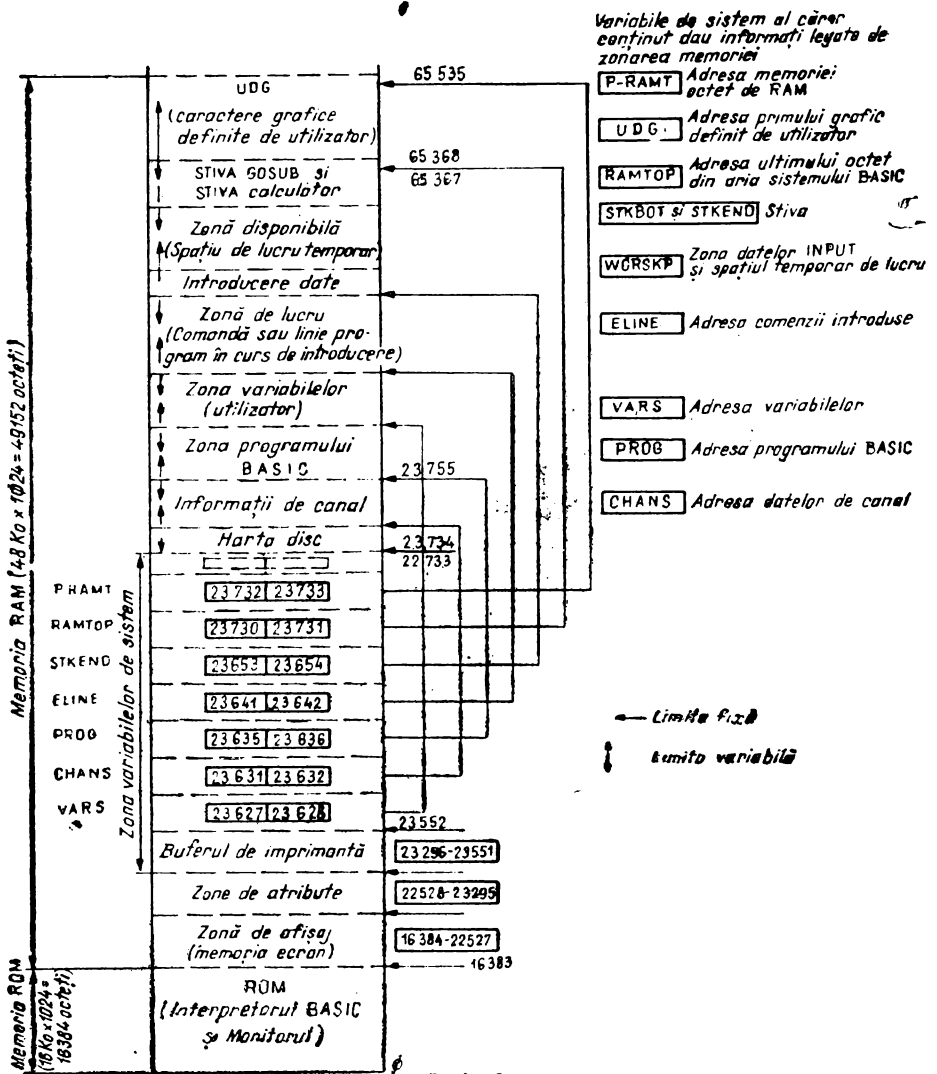 Variabile de sistem al căror
conținut dau informați legate de
zonarea memoriei
P-RAMT Adresa memoriei
octet de RAM
UDG. Adresa primului grafic
definit de utilizator
RAMTOP Adresa ultimului octet
din aria sistemului BASIC
STKBOT și STKEND Stiva
WORSKP Zona datelor INPUT
și spațiul temporar de lucru
ELINE Adresa comenzii introduse
VARS Adresa variabilelor
PROG Adresa programului BASIC
CHANS Adresa datelor de canal
Limita fixă
Limita variabilă
65 535
UDG
(caractere grafice
definite de utilizator)
65 368
65 367
STIVA GOSUB și
STIVA calculator
Zonă disponibilă
(Spațiu de lucru temporar)
Introducere date
Zonă de lucru
(Comandă sau linie pro-
gram în curs de introducere)
Zona variabilelor
(utilizator)
Zona programului
BASIC
23 755
Informații de canal
Harta disc
23 734
22 733
PHAMT 23 732 23 733
RAMTOP 23 730 23 731
STKEND 23 653 23 654
ELINE 23 641 23 642
PROG 23 635 23 636
CHANS 23 631 23 632
VARS 23 627 23 628
23 552
Buferul de imprimantă 23 296-23551
Zone de atribute 22528-23295
Zonă de afișaj
(memoria ecran)
16 384-22527
16 383
ROM
(Interpretorul BASIC
și Monitorul)
ϕ
Memoria RAM (48 Ko x 1024 = 49152 octeți)
Zona variabilelor de sistem
Memoria ROM
(16 Ko x 1024 =
16384 octeți)